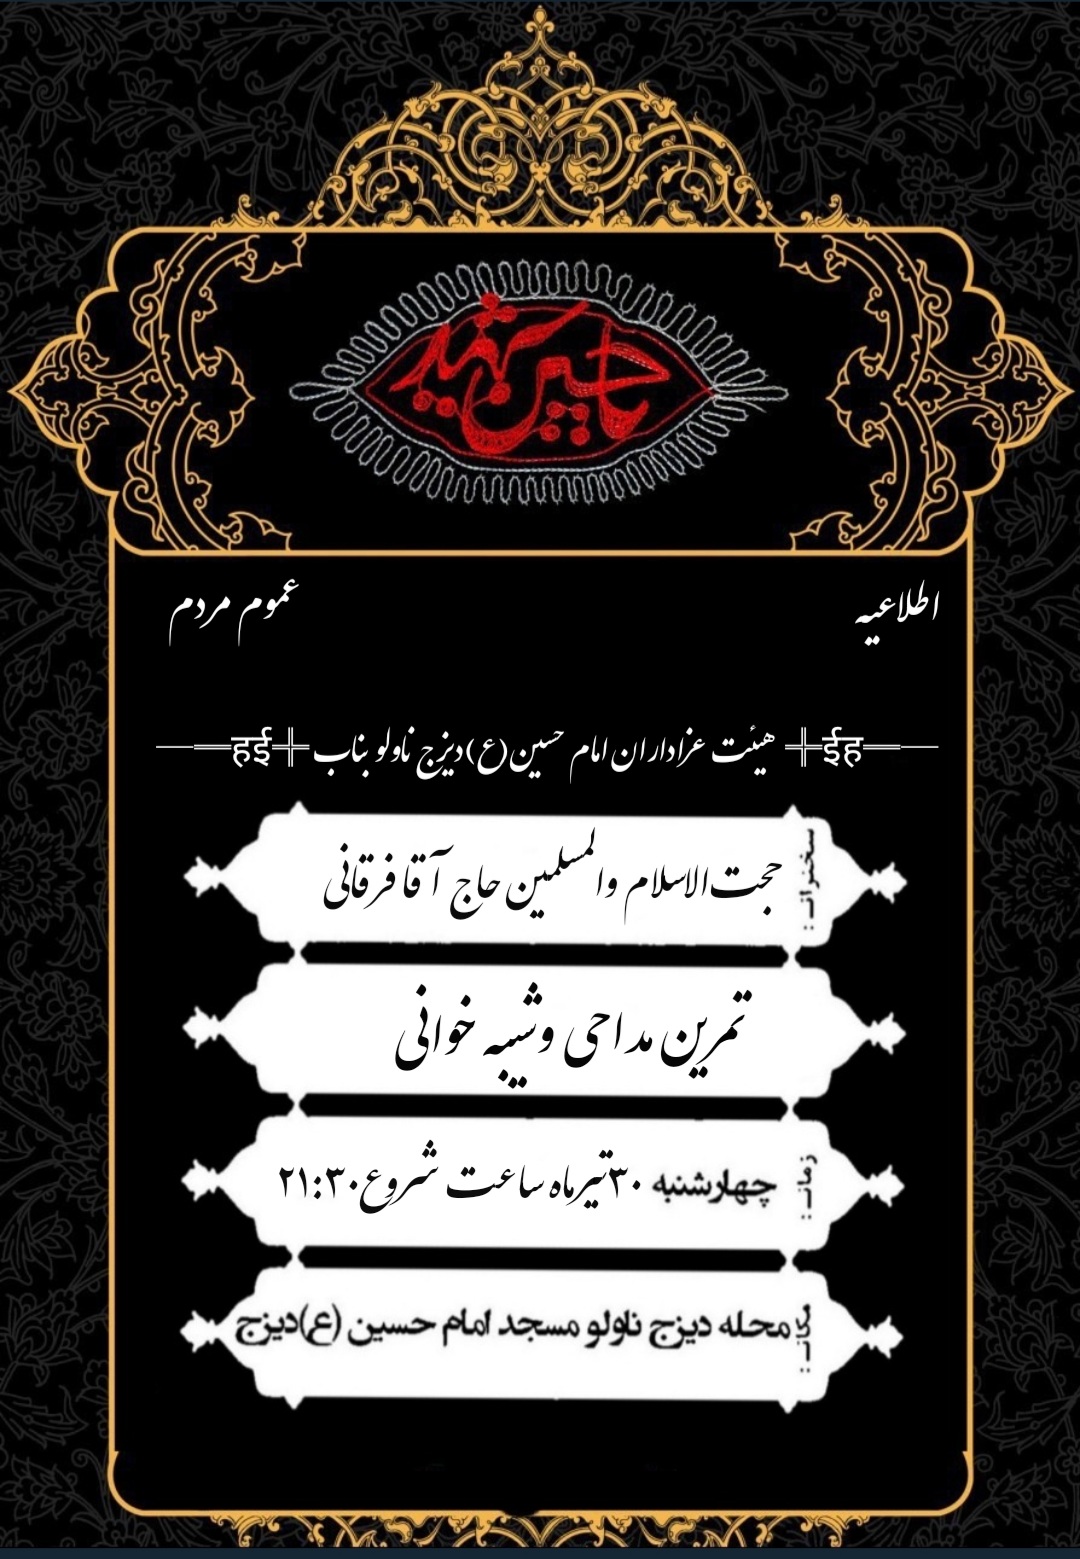 یا حسین شهید
اطلاعیه
عموم مردم
ईह═╬ هیئت عزاداران امام حسین(ع)دیزج ناولو بناب ╬═हई
سخنران :
حجت‌الاسلام والمسلمین حاج آقا فرقانی
تمرین مداحی وشبیه خوانی
زمان :
چهارشنبه ۳۰تیرماه ساعت شروع۲۱:۳۰
مکان :
محله دیزج ناولو مسجد امام حسین (ع)دیزج